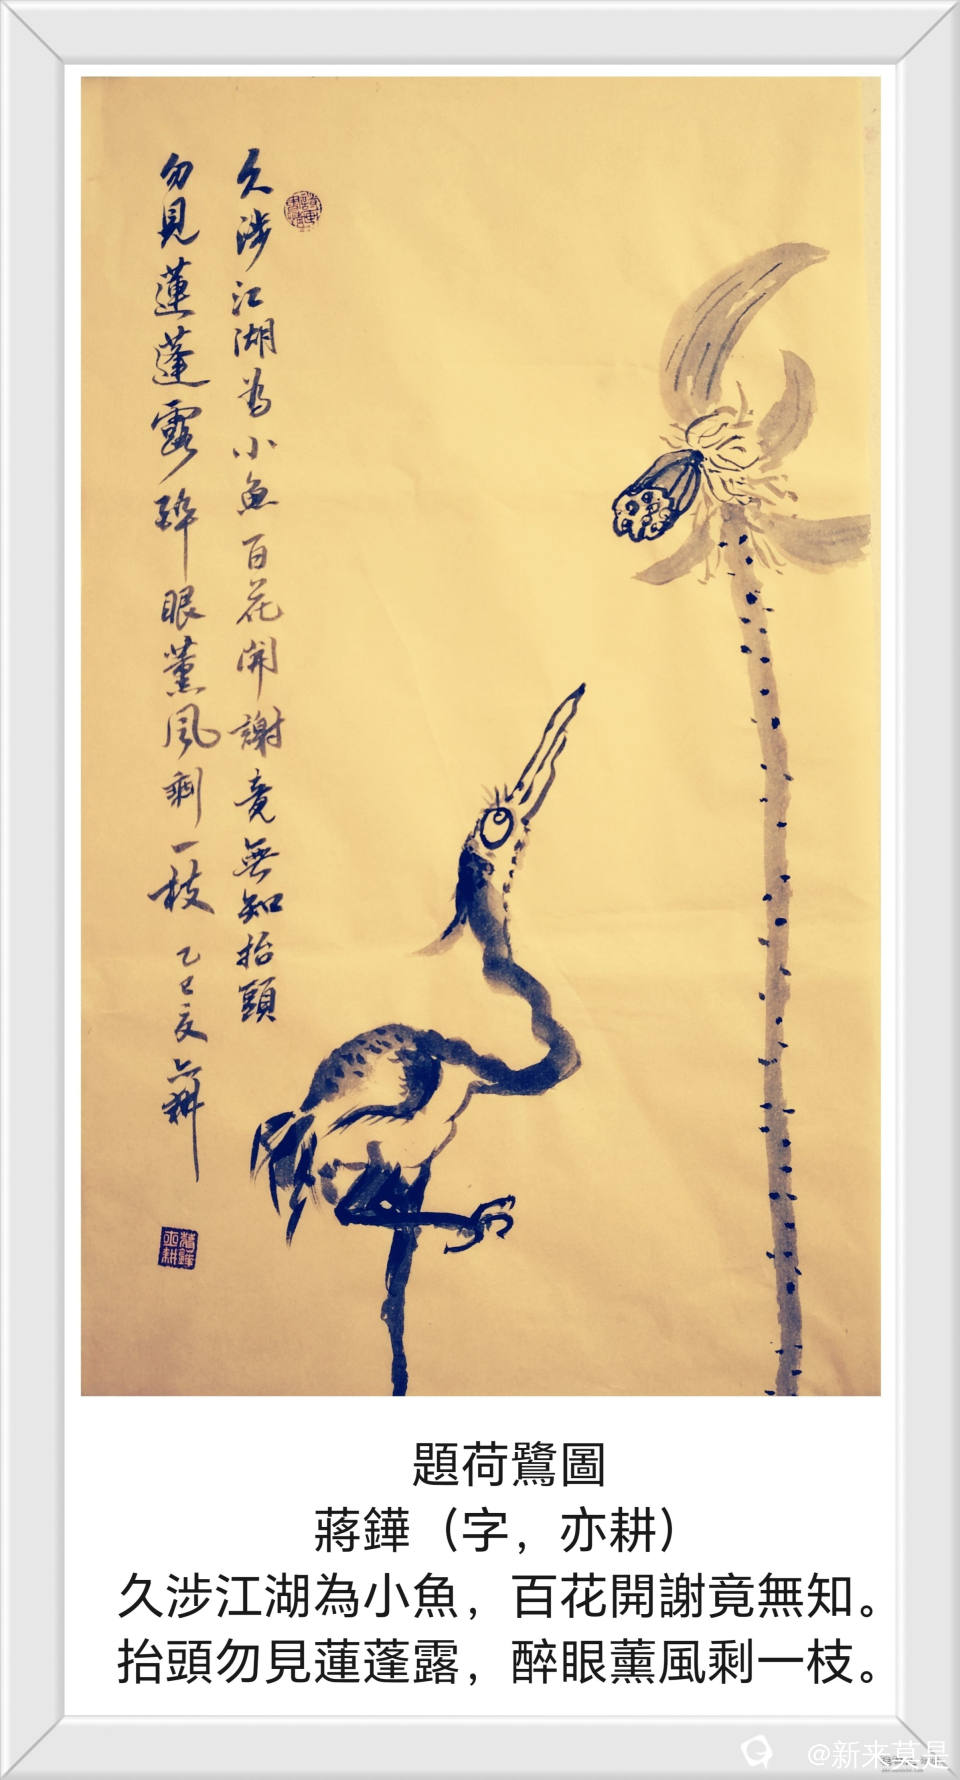 久涉江湖為小魚百花開謝竟無知抬頭
勿見蓮蓬露醉眼薰風剩一枝 乙巳夏 亦耕
蔣鏵亦耕
題荷鷺圖
蔣鏵（字，亦耕）
久涉江湖為小魚，百花開謝竟無知。
抬頭勿見蓮蓬露，醉眼薰風剩一枝。
@新来莫是